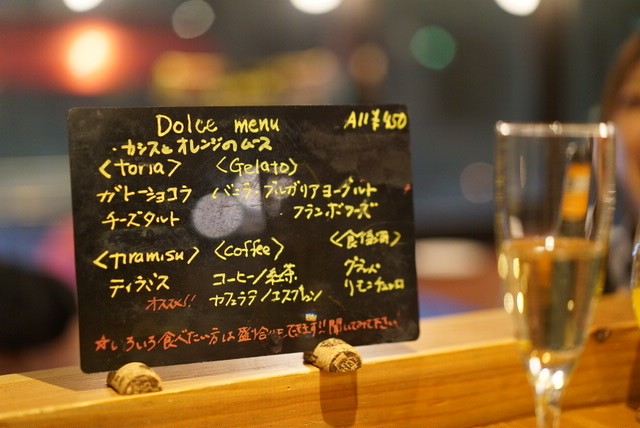 Dolce menu All ¥450
・カシスとオレンジのムース
<toria> <Gelato>
ガトーショコラ バニラ・ブルガリアヨーグルト
チーズタルト フランボワーズ
<tiramisu> <coffee> <食後酒>
ティラミス コーヒー/紅茶 グラッパ
オススメ!! カフェラテ/エスプレッソ リモンチェッロ
☆いろいろ食べたい方は盛合せできます!!聞いてみて下さい